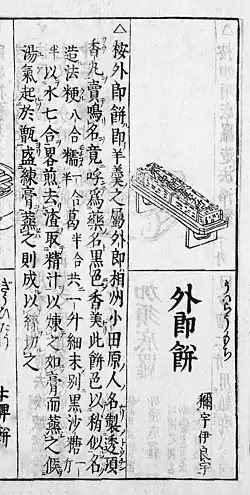 うゐらうもち
外郎餅
彌宇伊良宇
△按外郎餅即羊羹之屬外郎相州小田原人名製透頂
香凡賣鳴名竟呼爲藥名黒色香美此餅色以稍似名
造法粳八合糯一合葛半合共一升細末別黒沙糖斤
半以水七合畧煎去渣取精汁以煉之如膏而蒸之候
湯氣起於甑盛練膏蒸之則成以絲切之
ぎうひたう